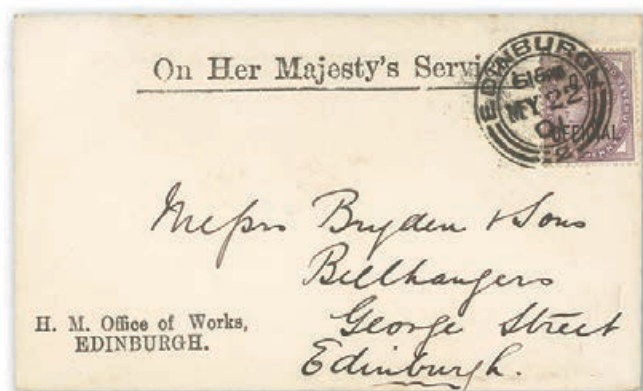 On Her Majesty's Service
EDINBURGH
MY 22
01
2
OFFICIAL
Messrs Bryden & Sons
Bellhangers
George Street
Edinburgh.
H. M. Office of Works,
EDINBURGH.